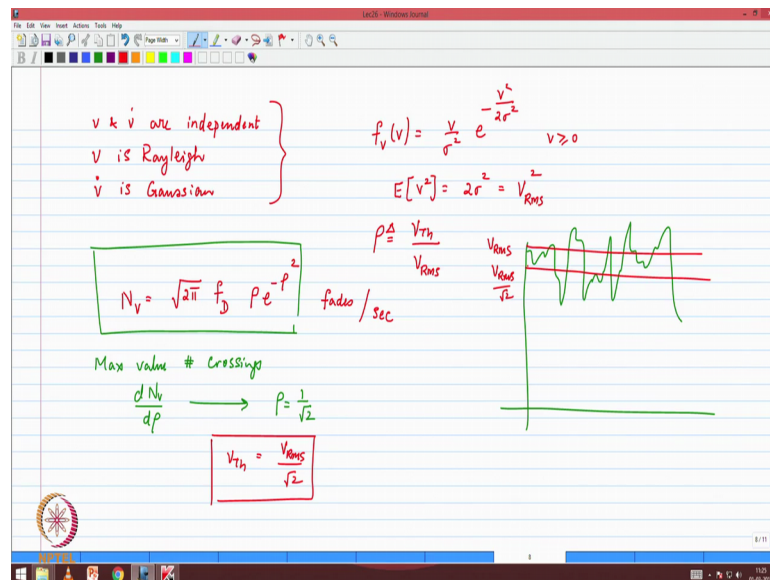 Lec26 - Windows Journal
File Edit View Insert Actions Tools Help
Page Width
B I
v & v̇ are independent
v is Rayleigh
v̇ is Gaussian
f_v(v) = v/σ² e^(-v²/2σ²) v ≥ 0
E[v²] = 2σ² = V²_Rms
ρ ≜ V_Th / V_Rms
N_v = √2π f_D ρ e^(-ρ²) fades / sec
V_Rms
V_Rms / √2
Max value # crossings
dN_v / dρ ⟶ ρ = 1/√2
V_Th = V_Rms / √2
NPTEL
8 / 11
8
11:25